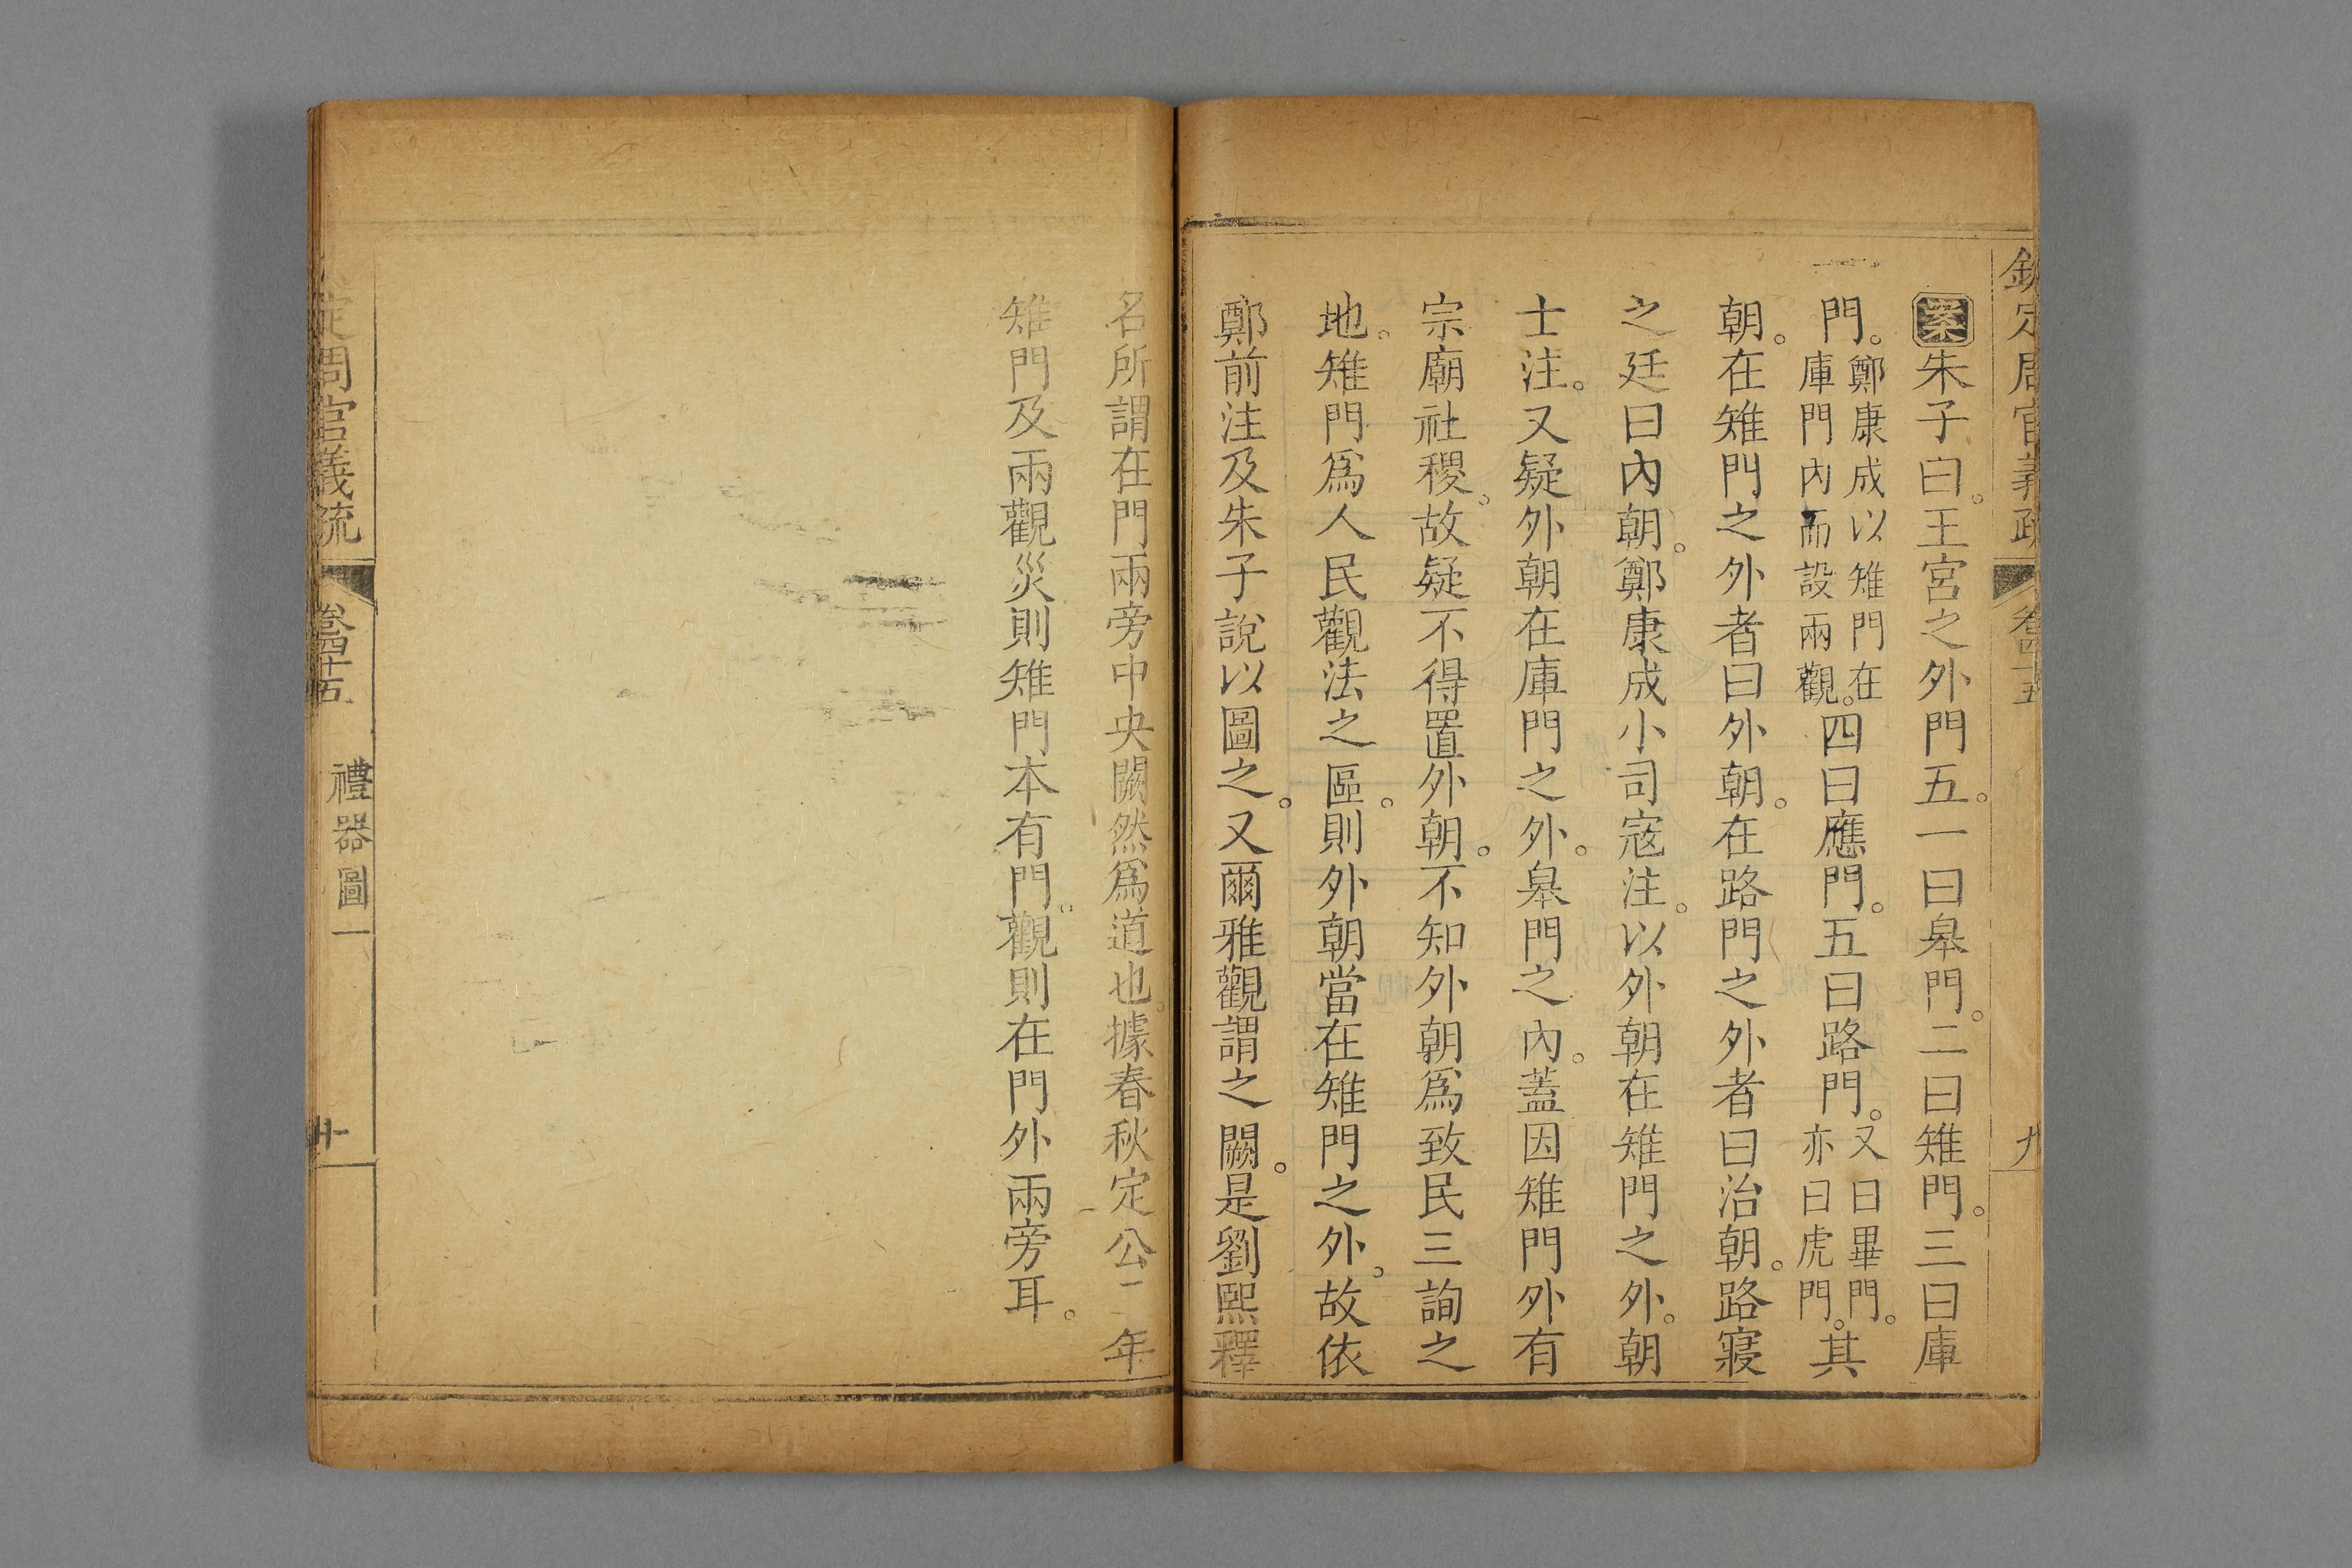 欽定周官義疏 卷四十五 九
案朱子曰。王宮之外門五。一曰皋門。二曰雉門。三曰庫
門。鄭康成以雉門在庫門內而設兩觀。四曰應門。五曰路門。又曰畢門。亦曰虎門。其
朝。在雉門之外者曰外朝。在路門之外者曰治朝。路寢
之廷曰內朝。鄭康成小司寇注。以外朝在雉門之外。朝
士注。又疑外朝在庫門之外。皋門之內。蓋因雉門外有
宗廟社稷。故疑不得置外朝。不知外朝爲致民三詢之
地。雉門爲人民觀法之區。則外朝當在雉門之外。故依
鄭前注及朱子說以圖之。又爾雅觀謂之闕。是劉熙釋
名所謂在門兩旁中央闕然爲道也。據春秋定公二年
雉門及兩觀災則雉門本有門。觀則在門外兩旁耳。
定周官義疏 卷四十五 禮器圖一 十